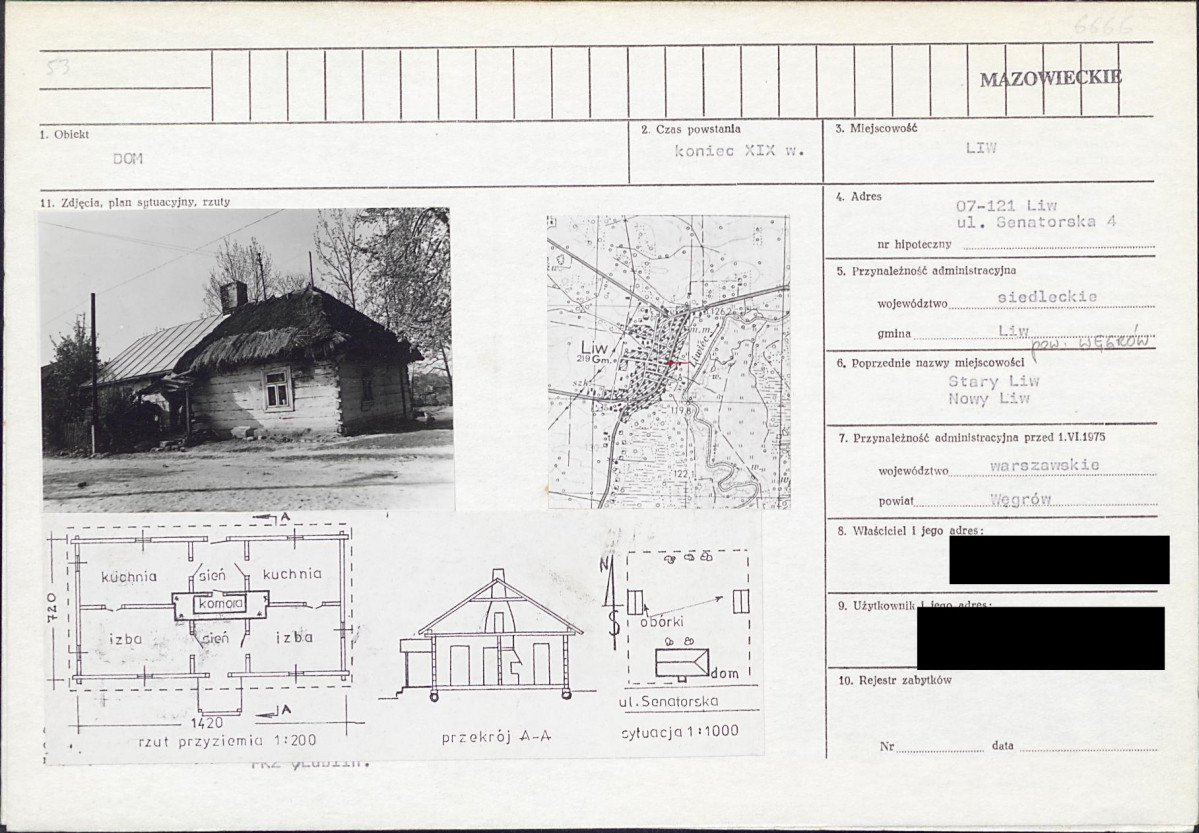 6666
53
MAZOWIECKIE
1. Obiekt
DOM
2. Czas powstania
koniec XIX w.
3. Miejscowość
LIW
11. Zdjęcia, plan sytuacyjny, rzuty
4. Adres
07-121 Liw
ul. Senatorska 4
nr hipoteczny
5. Przynależność administracyjna
województwo siedleckie
gmina Liw
pow. WĘGRÓW
6. Poprzednie nazwy miejscowości
Stary Liw
Nowy Liw
7. Przynależność administracyjna przed 1.VI.1975
województwo warszawskie
powiat Węgrów
8. Właściciel i jego adres:
9. Użytkownik i jego adres:
10. Rejestr zabytków
Nr data
Liw
219 Gm.
szk.
126
m.m.
Liwiec
119
122
A
kuchnia sień kuchnia
komora
izba sień izba
720
A
1420
rzut przyziemia 1:200
przekrój A-A
N
S
obórki
dom
ul. Senatorska
sytuacja 1:1000